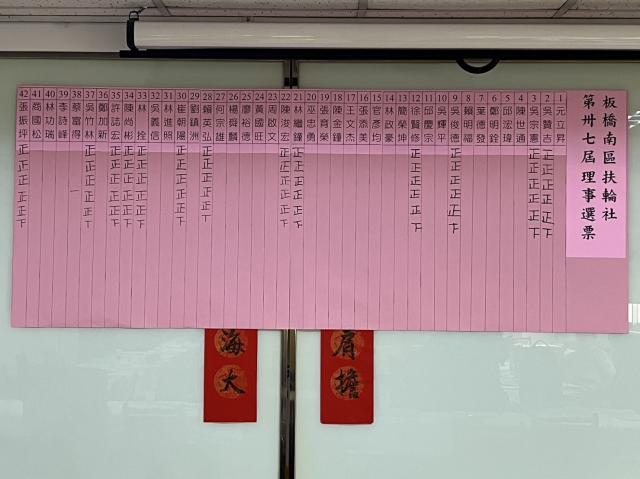 板橋南區扶輪社
第卅七屆理事選票
1 元立昇
2 吳贊吉 正正正正正下
3 吳宗憲 正正正正正下
4 陳世通
5 邱宏瑋
6 鄭明銓
7 葉德發
8 賴明福
9 吳俊德 正正正正正
10 吳輝平
11 邱慶宗
12 徐賢修 正正正正正下
13 簡榮坤
14 林政豪
15 官彥均
16 張添美
17 王文杰
18 陳金鐘
19 張育榮
20 巫忠勇
21 林繼鐘 正正正正正
22 陳浚宏 正正正正正下
23 周啟文
24 黃國旺
25 廖裕德
26 楊舜麟
27 何宗雄
28 賴英弘 正正正正正
29 劉鎮洲
30 崔朝陽 正正正正正
31 林進照
32 吳義信
33 林 拴 正正正正正
34 陳尚彬 正正正正正
35 許誌宏 正正正正正
36 鄭加新
37 吳竹林 正正正正正
38 蔡富得 一
39 李詩峰
40 林功瑞
41 商國松
42 張振坪 正正正正正下
海大
肩擔